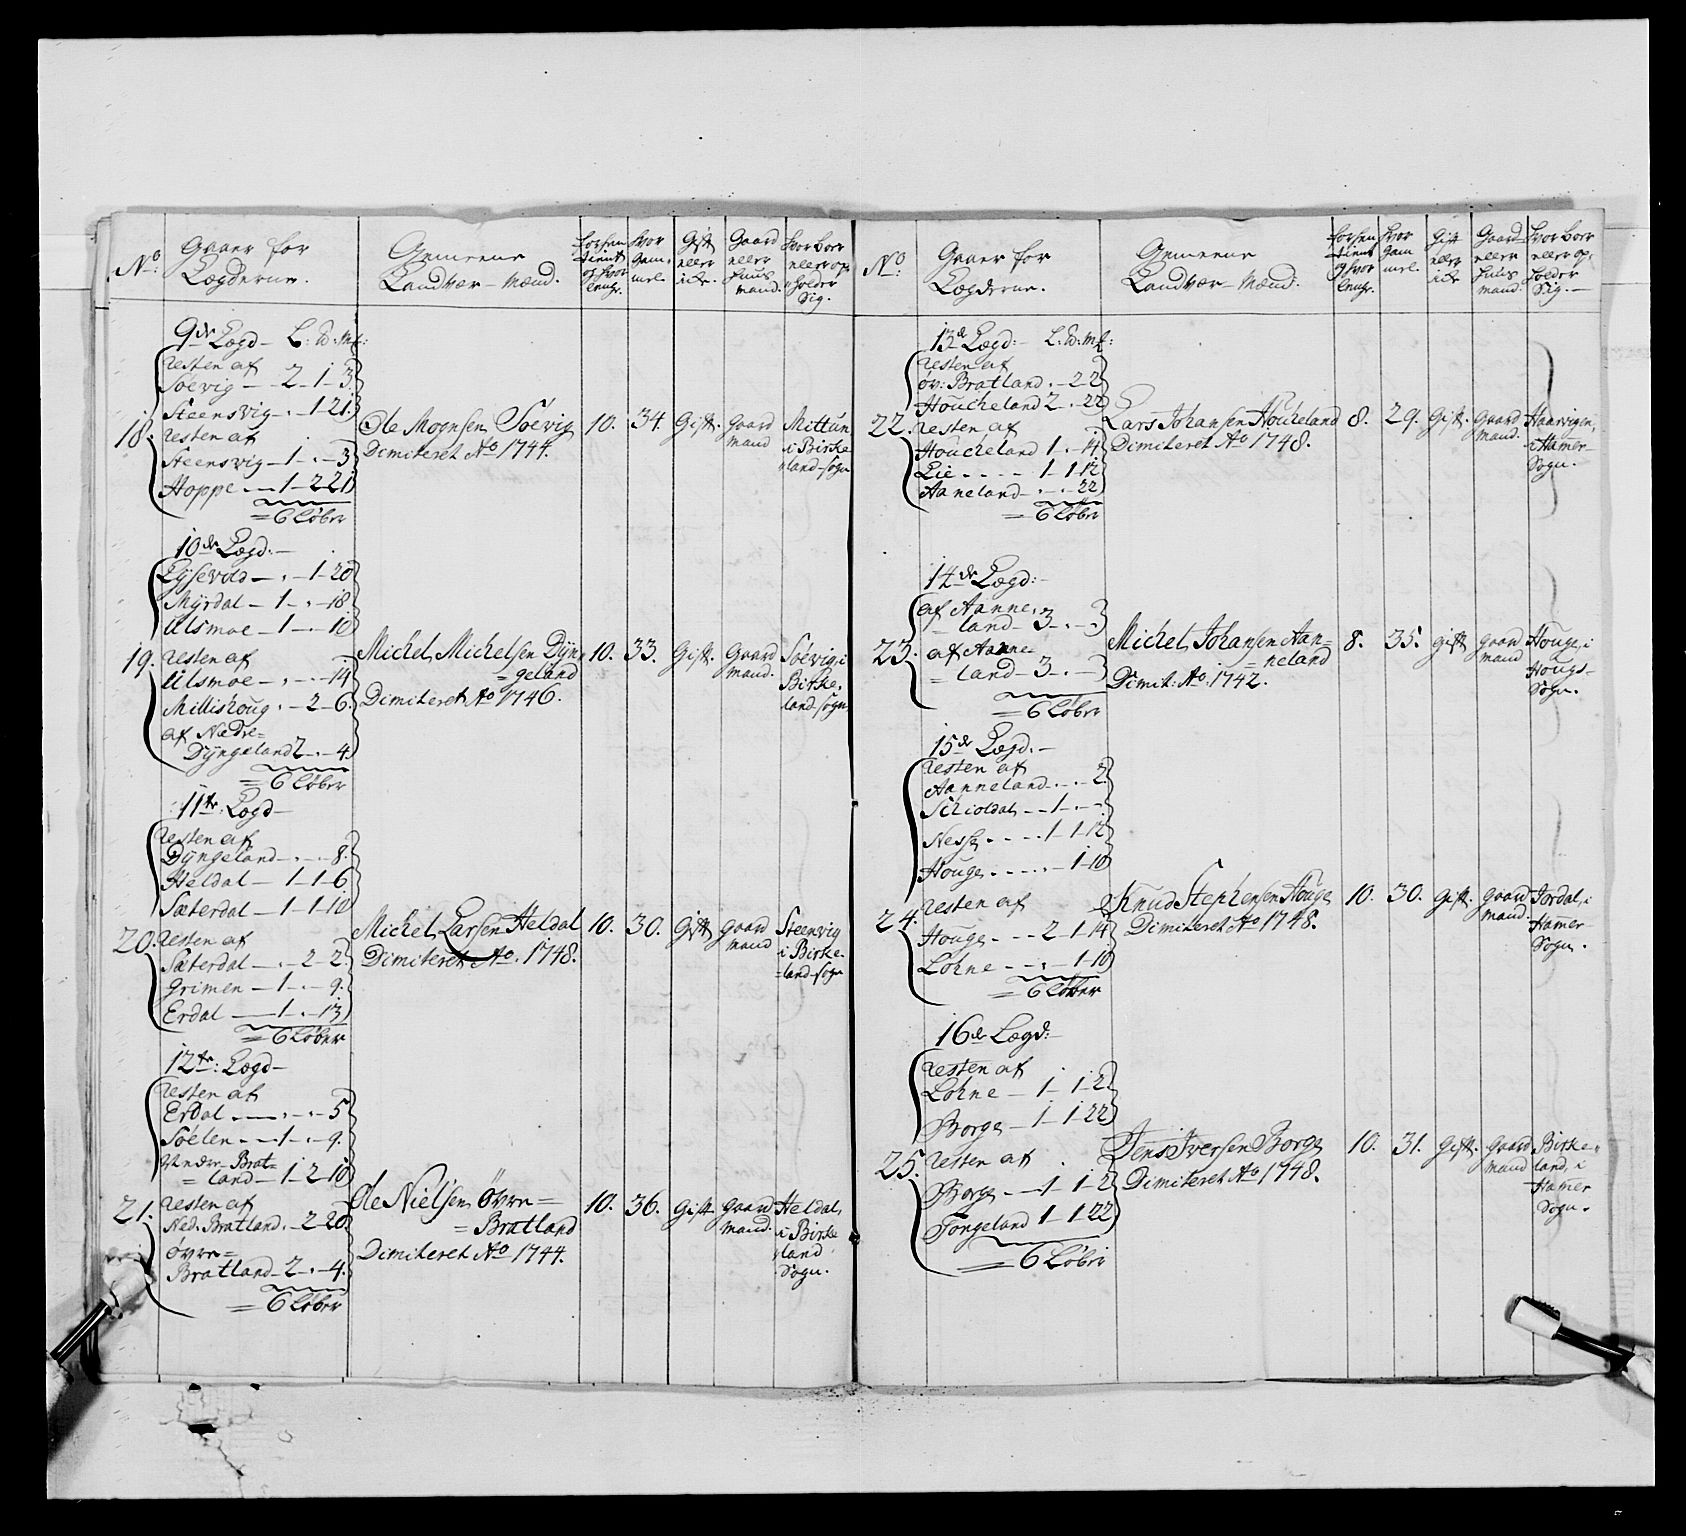 No:
Gaarer for
Lægderne.
Gemeene
Landvær-Mænd.
forhen
tient
og hvor
lenge.
hvor
Gam-
mel.
Gift
eller
icke.
Gaard
eller
Huus
mand.
hvor boer
eller op-
holder
Sig.
9de Lægd - L: ℔: mk:
Resten af
Søevig - - 2 - 1 - 3
Steensvig - . - 1 - 21
18. Resten af
Steensvig - 1 - . - 3
Hoppe - - 1 - 2 - 21
= 6 Løber
Ole Monsen Søevig
Dimiteret Ao 1744.
10. 34. Gift. Gaard
mand
Mittun
i Birke
land-sogn
10de Lægd: -
Lysevold - . - 1 - 20
Myrdal - 1 - . - 18.
Ulsmoe - 1 - . - 10
19. Resten af
Ulsmoe - . - . - 14
Millishoug . - 2 - 6.
af Nedre =
Dyngeland 2 - . - 4.
= 6 Løber
Michel Michelsen Dyn-
= geland
Dimiteret Ao 1746.
10. 33. Gift. Gaard
mand.
Søevig, i
Birke,
land-sogn
11te: Lægd -
Resten af
Dyngeland - . - . - 8.
Heldal - 1 - 1 - 6
Sæterdal - 1 - 1 - 10
20. Resten af
Sæterdal - . - 2 - 2.
Grimen - 1 - . - 9.
Erdal - 1 - . - 13
= 6 Løber
Michel Larsen Heldal
Dimiteret Ao. 1748.
10. 30. Gift Gaard
mand
Steenvig
i Birke-
= land-sogn
12te: Lægd -
Resten af
Erdal - . - . - 5
Søelen - - 1 - . - 9.
Nedre Brat=
= land - 1 - 2 - 10
21. Resten af
Ned. Bratland . - 2 - 20.
Øvre =
Bratland - 2 - . - 4.
= 6 Løber
Ole Nielsen Øvre =
= Bratland
Dimiteret Ao 1744.
10. 36. Gift. Gaard
mand.
Heldal
i Birke
land
Sogn.
No:
Gaarer for
Lægderne.
Gemeene
Landvær-Mænd.
forhen
tient
og hvor
lenge.
hvor
Gam
mel.
Gift
eller
icke
Gaard
eller
Huus
mand.
hvor boer
eller op-
holder
Sig. -
13de Lægd: - L: ℔: mk:
Resten af
Øv: Bratland . - 2 - 2
Houcheland 2 . - 22
22. Resten af
Houcheland 1 . - 4
Lie - - - - 1 - 1 - 12
Aaneland - . - . - 22
= 6 Løber
Lars Johansen Houcheland
Dimiteret Ao 1748.
8. 29. Gift. Gaard
mand.
Haarvigen,
i Hamer-
Sogn.
14de Lægd: -
af Aanne,
= land - 3 - . -
23. af Aanne
= land - 3 - . -
= 6 Løber
Michel Johansen Aan=
= neland
Dimit: Ao. 1742.
8. 35. Gift Gaard
mand
Houge, i
Hougs-
Sogn.
15de Lægd. -
Resten af
Aanneland - . - . - 2
Schioldal - - 1 - . - .
Nesse . - - . 1 - 1 - 12
Houge . . . . . - 1 - 10
24. Resten af
Houge - - - 2 - 1 - 14
Lohne - - . - 1 - 10
= 6 Løber
Knud Stephensen Houge
Dimiteret Ao 1748.
10. 30. Gift. Gaard
mand.
Jordal, i
Hamer
Sogn.
16de Lægd: -
Resten af
Lohne - 1 - 1 - 2
Borge - 1 - 1 - 22
25. Resten af
Borge - - 1 - 1 - 2
Tongeland 1 - 1 - 22
= 6 Løber
Jens Iversen Borge
Dimiteret Ao 1748.
10. 31. Gift. Gaard
mand
Birke-
land, i
Hamer
Sogn.